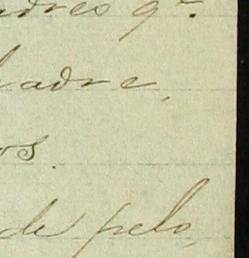 adres qᵉ.
adre,
os.
de pelo,